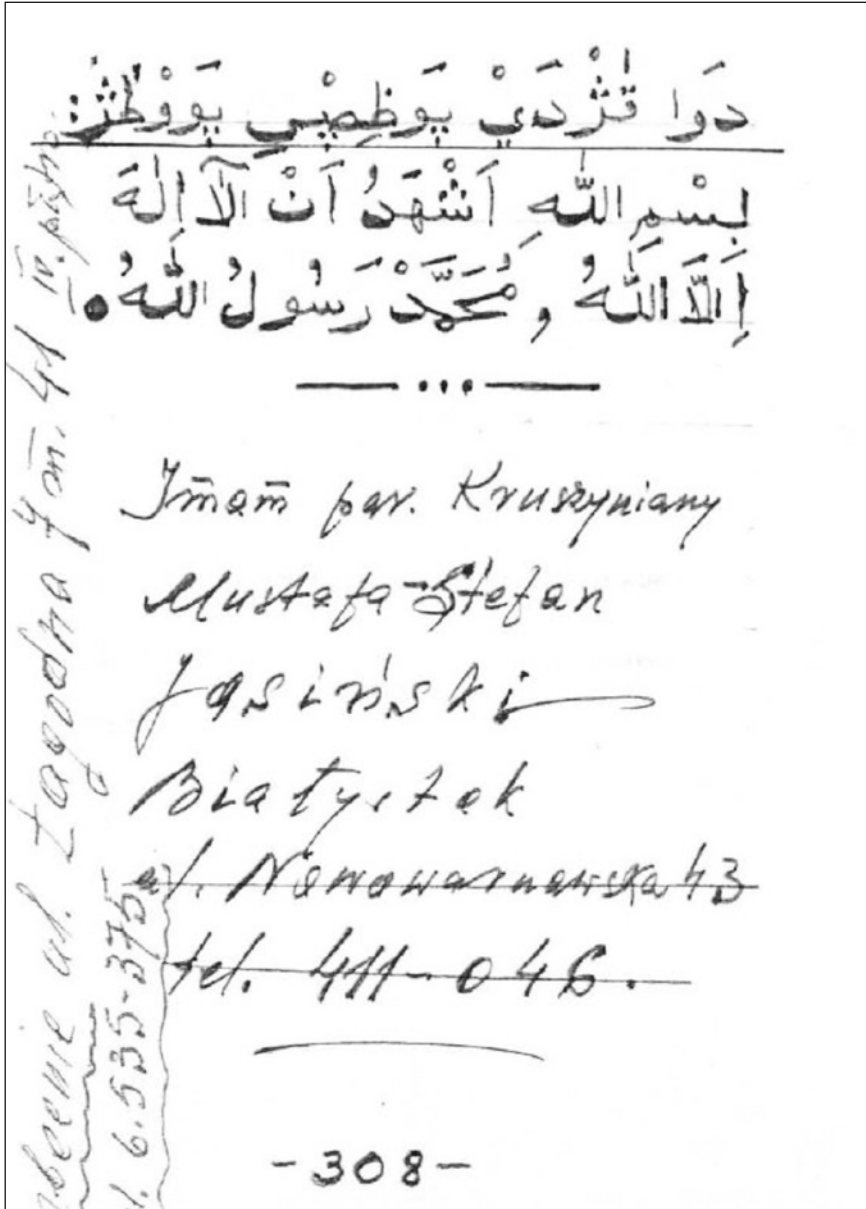 دَوَا قَژْدَيْ يَوَظِضْيِ يَوَوْطَژْ:
بِسْمِ اللّٰهِ اَشْهَدُ اَنْ لَآ اِلٰهَ
اِلَّا اللّٰهُ وَ مُحَمَّدْ رَسُولُ اللّٰهُ ١٥
Imām par. Kruszyniany
Mustafa-Stefan
Jasiński
Białystok
ul. Nowowarszawska 43
tel. 411-046.
-308-
ul. Łagodna 7 m. 41 IV. piętro
6.535-375